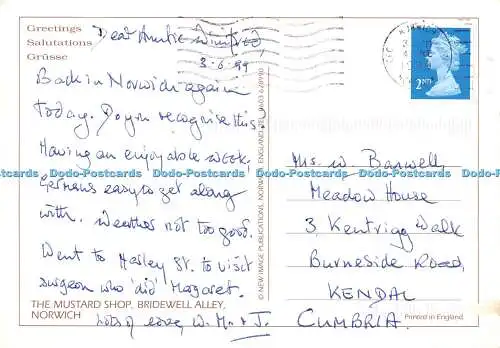 Greetings
Salutations
Grüsse
Dear Auntie Winifred,
3.6.99
Back in Norwich again
today. Do you recognise this?
Having an enjoyable week,
Germans easy to get along
with. Weather not too good.
Went to Harley St. to visit
surgeon who 'did' Margaret.
Lots of love, W. M. & J.
THE MUSTARD SHOP, BRIDEWELL ALLEY,
NORWICH
© NEW IMAGE PUBLICATIONS, NORWICH, ENGLAND. TEL: 0603 678990
2ND
Mrs. W. Barwell
Meadow House
3 Kentrigg Walk
Burneside Road,
KENDAL
CUMBRIA.
Printed in England
Dodo-Postcards Dodo-Postcards Dodo-Postcards Dodo-Postcards